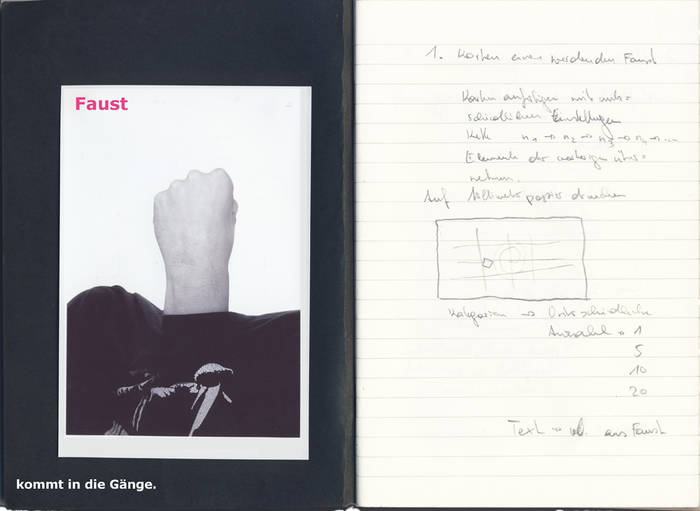 Faust
kommt in die Gänge.
1. Karten einer werdenden Faust
Karten anfertigen mit unter=
schiedlichen Einstellungen
Kette n1 → n2 → n3 → n4 → n...
Elemente der vorherigen über=
nehmen.
Auf Millimeterpapier drucken
Kategorien → Unterschiedliche
Anzahl 1
5
10
20
Text → aus Faust